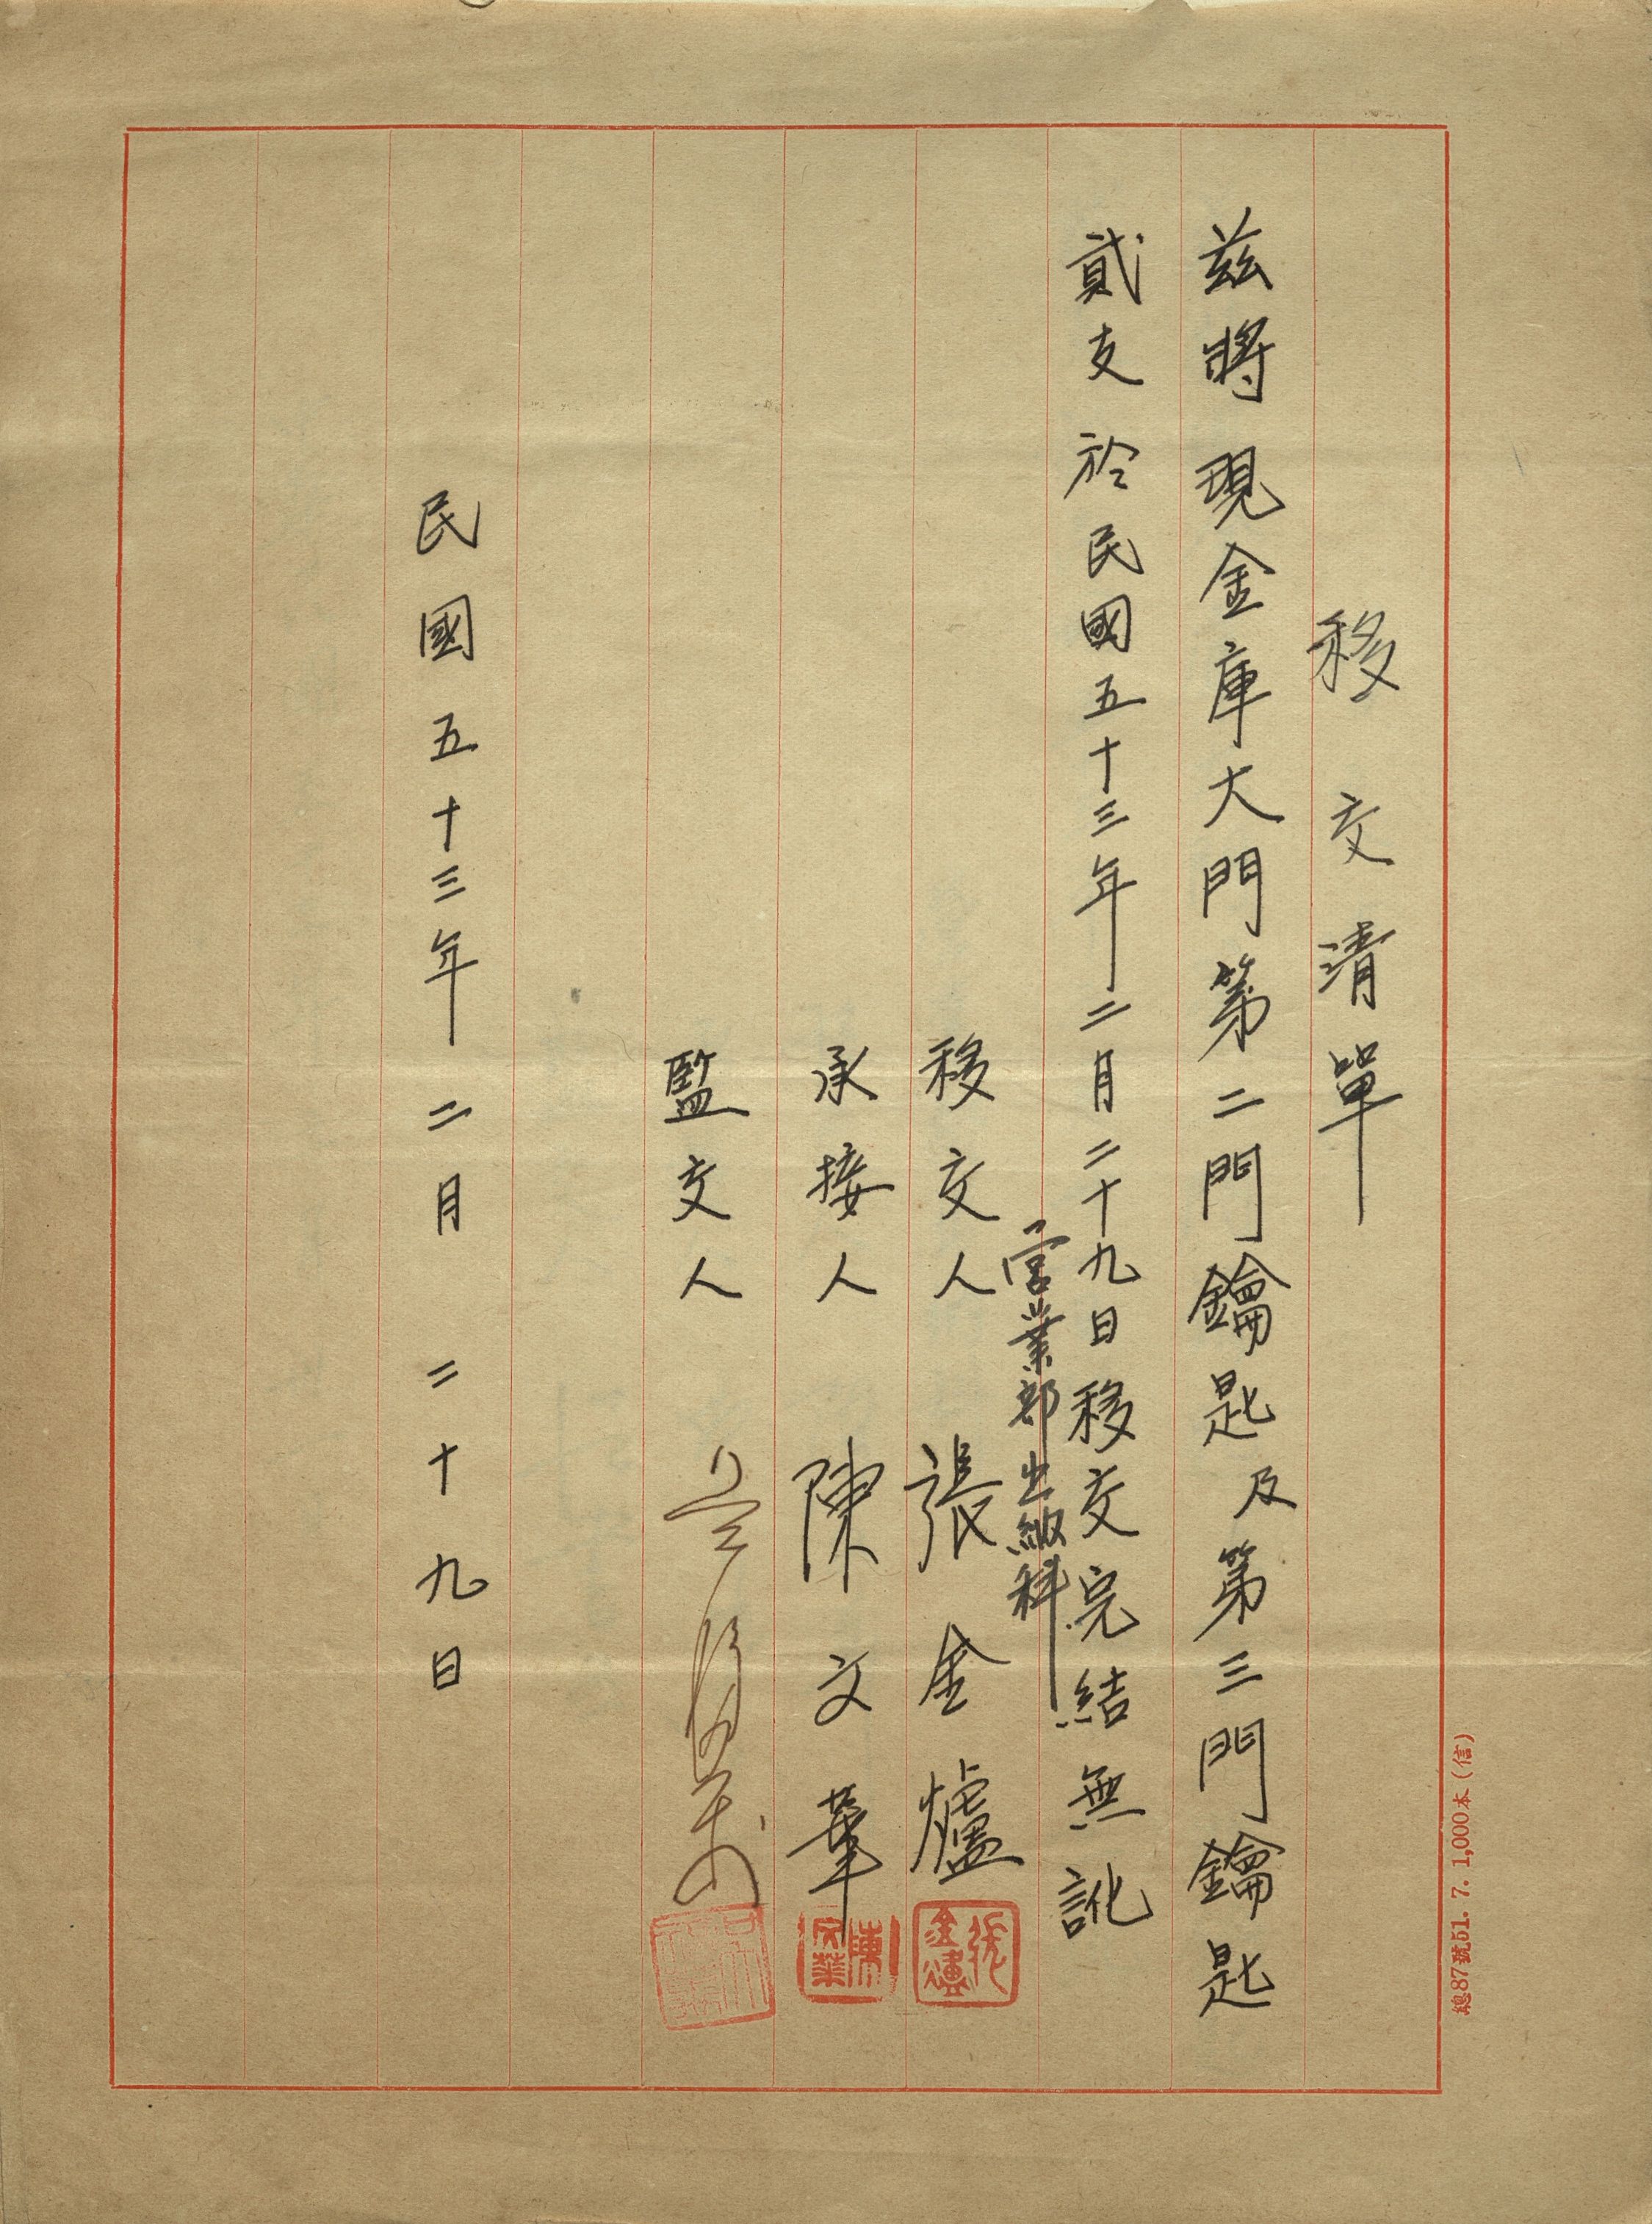 移交清單
茲將現金庫大門第二門鑰匙及第三門鑰匙
貳支於民國五十三年二月二十九日移交完結無訛
營業部出納科
移交人 張金爐
承接人 陳文華
監交人
民國五十三年二月二十九日
張金爐
陳文華
總87號51. 7. 1,000本(信)